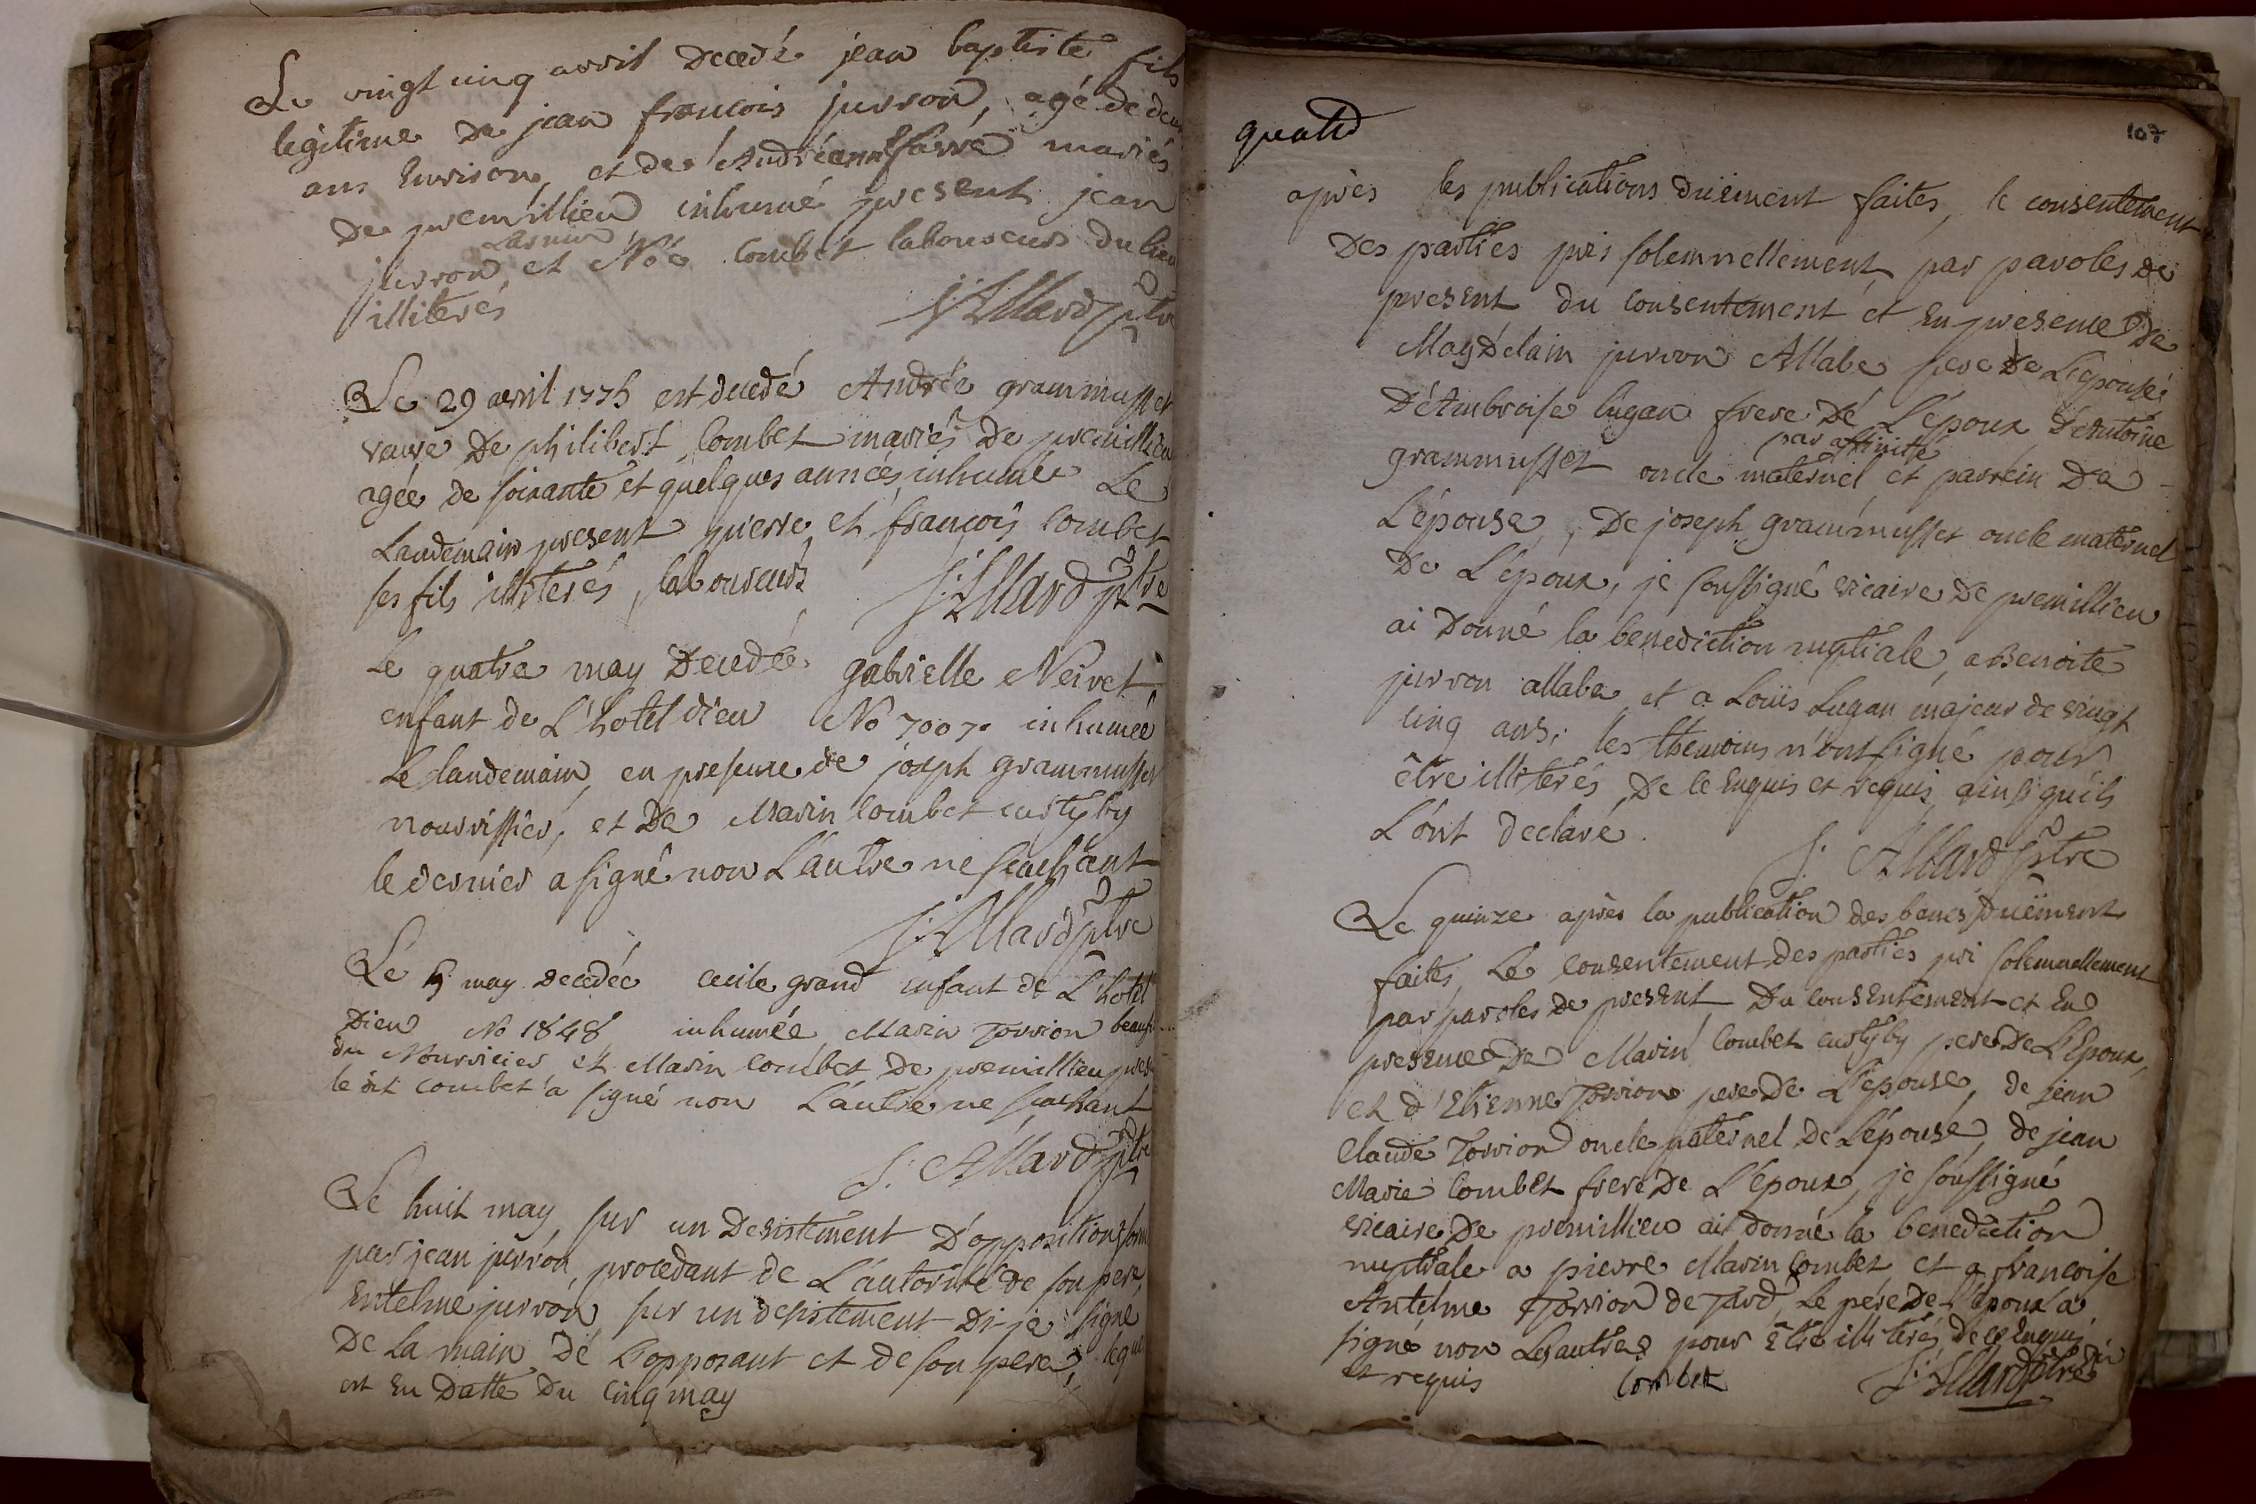 Le vingt cinq avril decedé jean baptiste fils
legitime de jean francois jurron, agé de deux
ans Environ, et de Andréanne favre mariés
de premillieu inhumé present jean
Larnin
jurron et Noé Combet laboureurs du lieu
illiterés
J: Allard ptre
Le 29 avril 1775 est decedé Andrée grammusset
veuve De philibert Combet mariés De premillieu
agée de soixante et quelques annces, inhumée Le
Landemain present pierre et françois Combet
ses fils illiterés, laboureurs
J: Allard ptre
Le quatre may Decedée gabrielle Neivet
enfant de L'hotel dieu No 7007. inhumée
Le landemain, en presence de joseph grammusset
nourrissier, et De Marin Combet custyby
le dernier a signé non L'autre ne scachant
J: Allard ptre
Le 5 may decedée cecile grand enfant de L'hotel
Dieu No 1848 inhumée Marin Torrion beaufr...
du Nourricier et Marin Combet De premillieu pres
le dit Combet a signé non L'autre ne scachant
J: Allard ptre
Le huit may, sur un Desistement D'opposition formé
par jean jurron, procedant de L'autorité de son pere,
Entelme jurron, sur un desistement Di-je signé
De la main De L'opposant et de son pere, lequel
est En Datte Du Cinq may
quatd
107
après les publications duëment faites, le consentement
Des parties pris solemnellement par paroles de
present du consentement et En presence De
Magdelain jurron Allabe pere de L'epousée
D'Ambroise lugan frere Dé L'époux D'Entoine
par affinité
grammusset oncle maternel et parrein De
L'épouse, De joseph grammusset oncle maternel
De L'époux, je soussigné vicaire De premillieu
ai Donné la benediction nuptiale, a Benoite
jurron allabe et a Loüis Lugan majeur de vingt
cinq ans; les themoins n'ont signé pour
être illiterés De ce Enquis et requis ainsi qu'ils
L'ont declaré.
J: Allard ptre
Le quinze après la publication des bancs Duëment
faites, Le consentement des parties pri solemnellement
par paroles de present Du consentement et En
presence De Marin Combet custyby pere De L'Epoux,
et d'Etienne Torrion pere De L'épouse, de jean
Claude Torrion oncle paternel De L'épouse, de jean
Marie Combet frere De L'époux, je soussigné
vicaire De premillieu ai donné la benediction
nuptiale a pierre Marin Combet et a françoise
Antelme Torrion de Tard, Le pére De L'époux a
signé non Les autres pour Etre illiterés de ce Enquis
et requis Combet J: Allard ptre vic